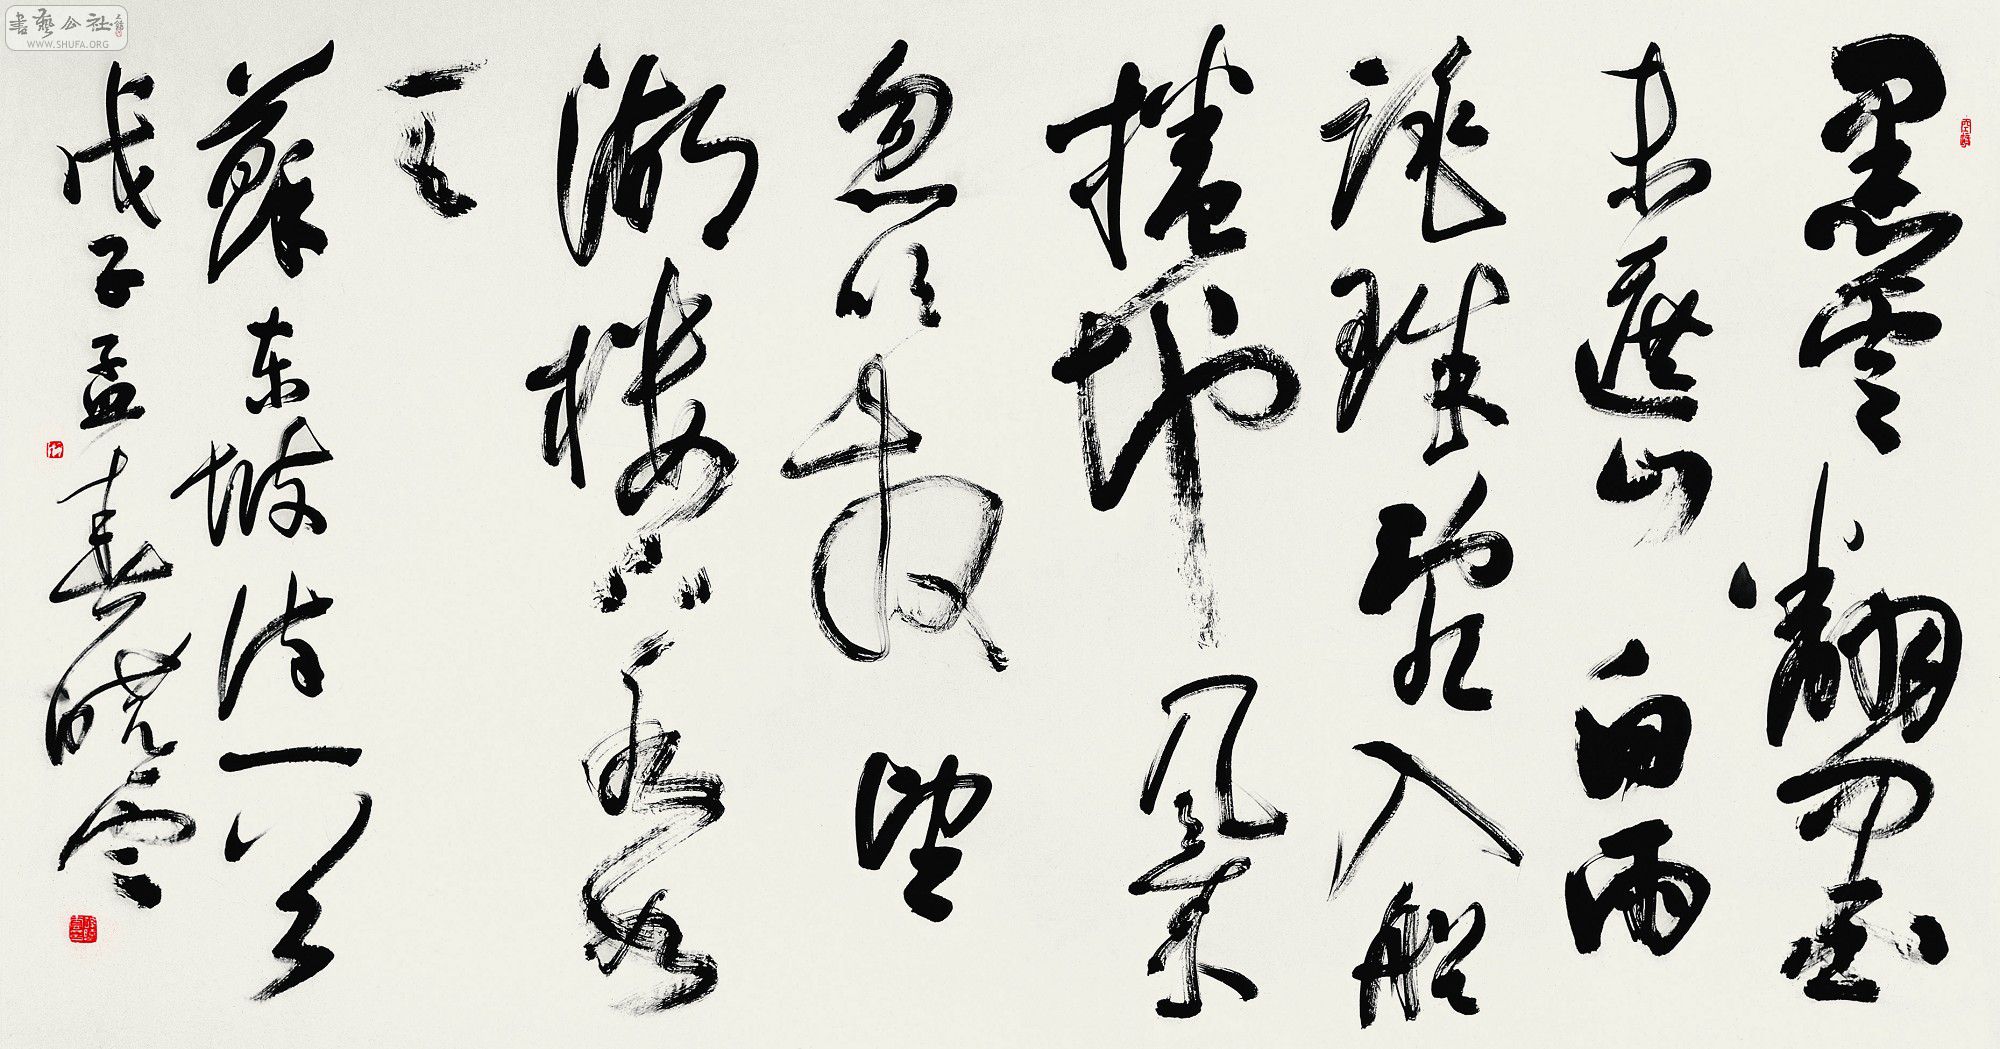 黑雲翻墨
未遮山白雨
跳珠亂入船
捲地風來
忽吹散望
湖樓下水如
天
蘇東坡詩一首
戊子孟春曉雲
書藝公社
WWW.SHUFA.ORG